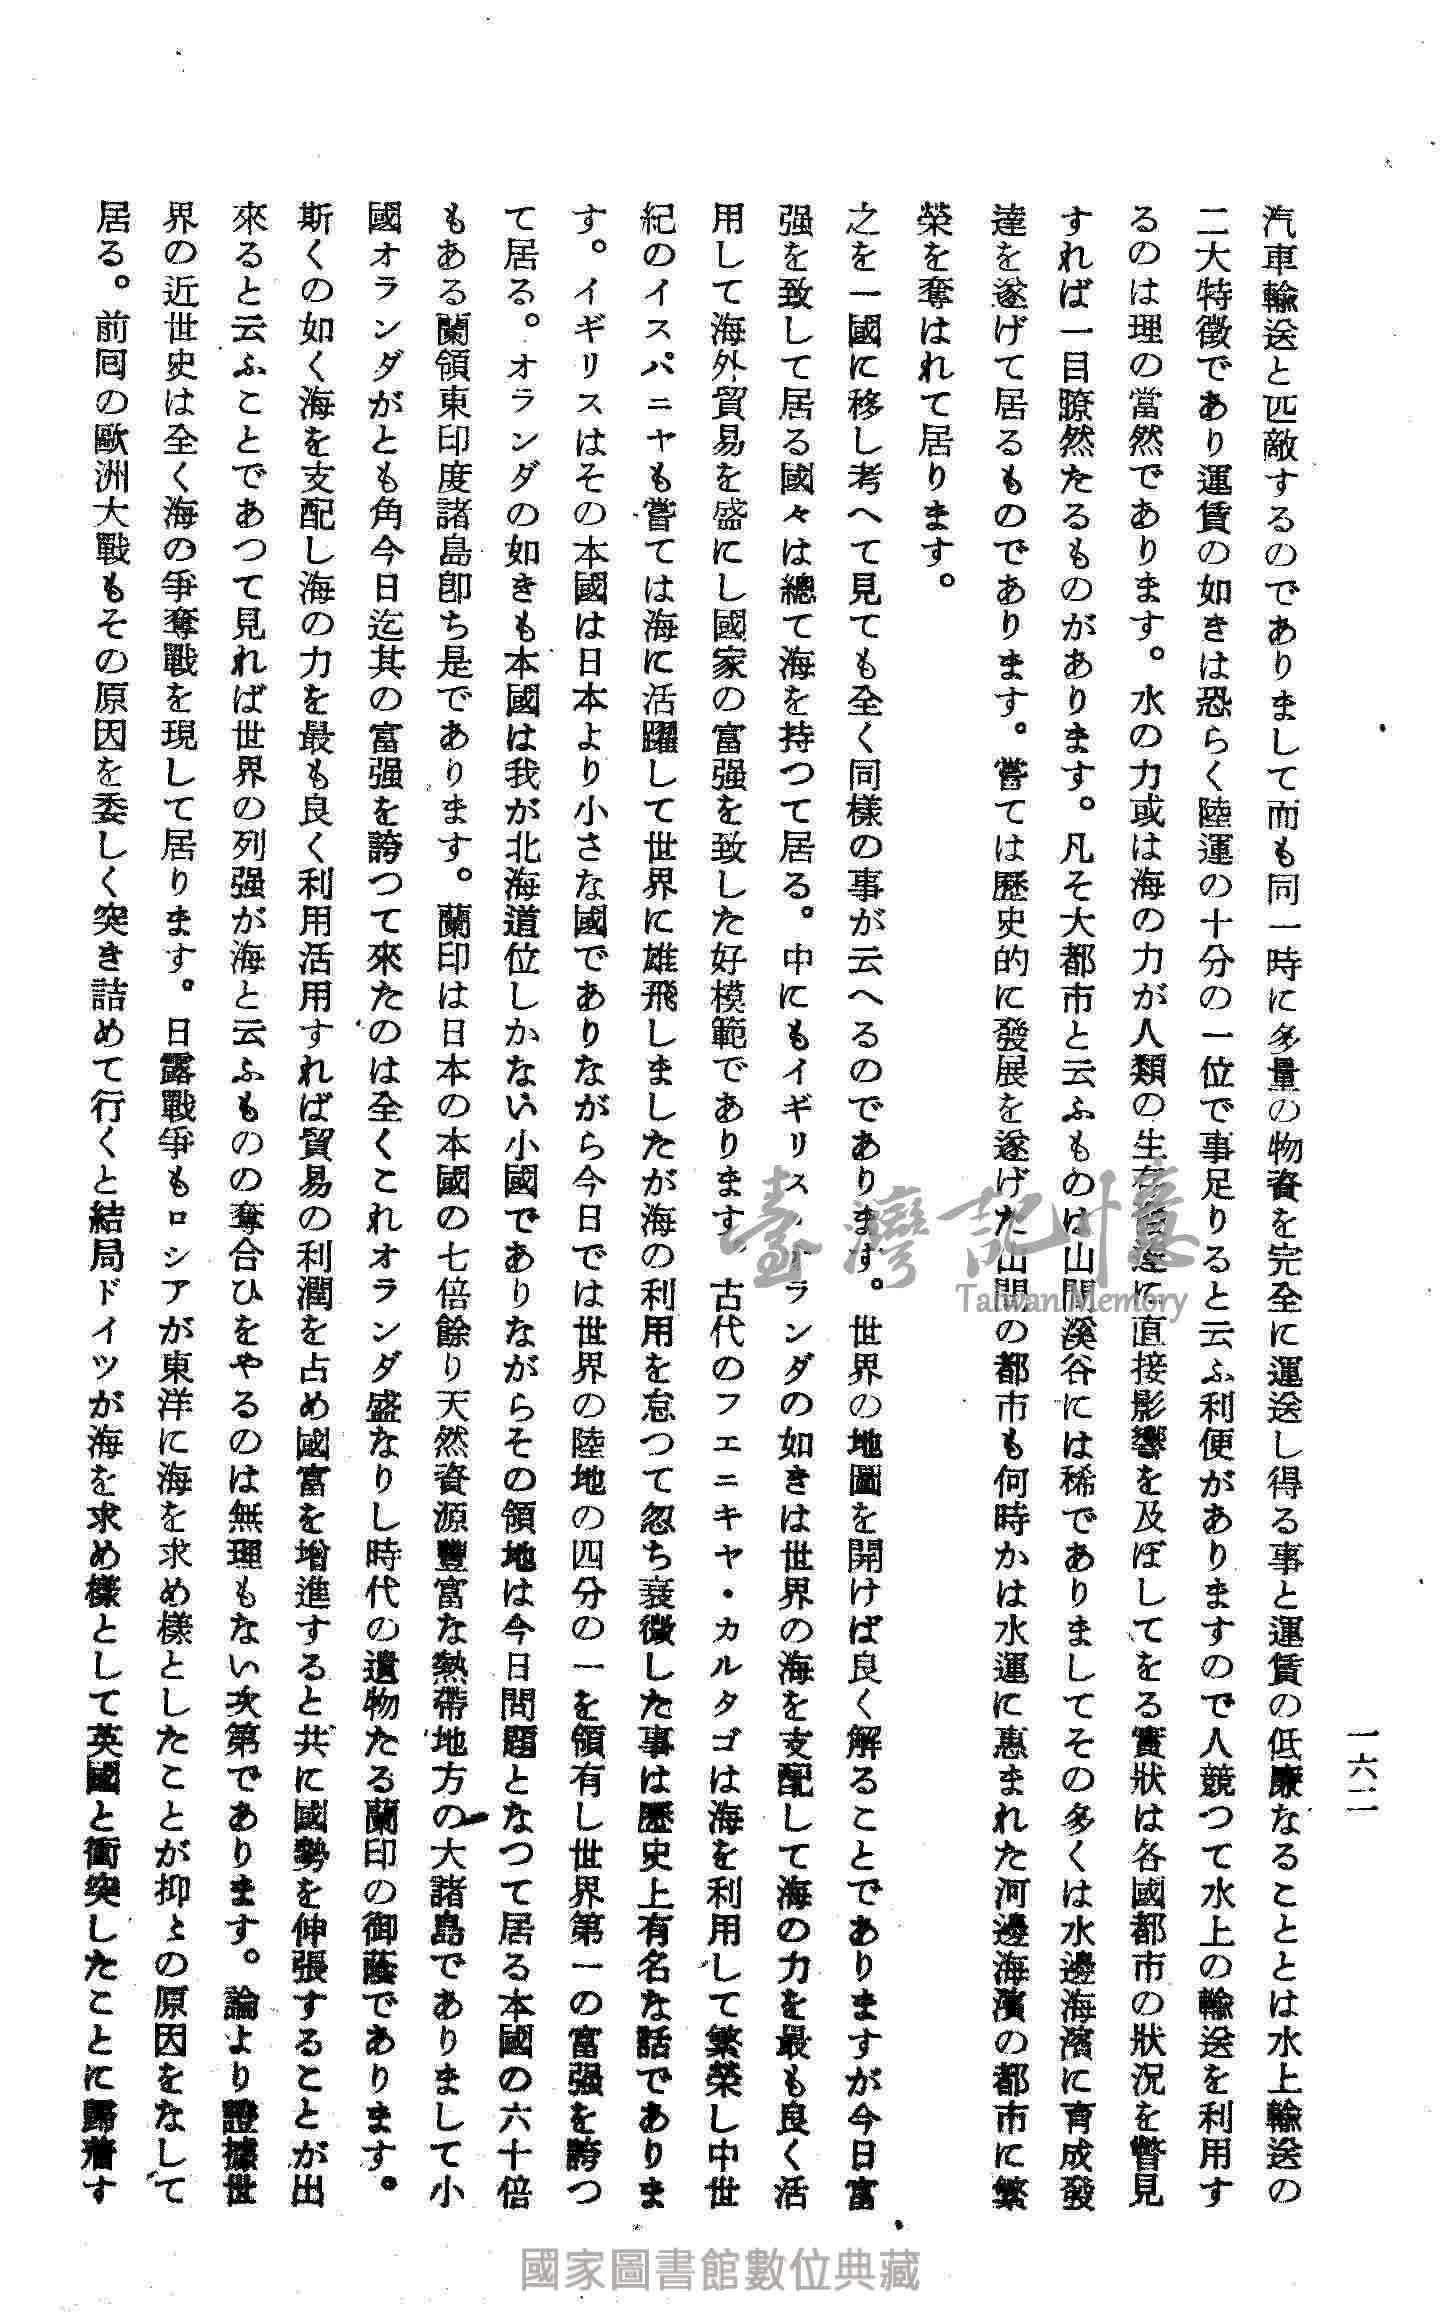 一六二
汽車輸送と匹敵するのでありまして而も同一時に多量の物資を完全に運送し得る事と運賃の低廉なることとは水上輸送の
二大特徴であり運賃の如きは恐らく陸運の十分の一位で事足りると云ふ利便がありますので人競つて水上の輸送を利用す
るのは理の當然であります。水の力或は海の力が人類の生存に直接影響を及ぼしてをる實狀は各國都市の狀況を瞥見
すれば一目瞭然たるものがあります。凡そ大都市と云ふものは山間溪谷には稀でありましてその多くは水邊海濱に育成發
達を遂げて居るものであります。嘗ては歷史的に發展を遂げた山間の都市も何時かは水運に惠まれた河邊海濱の都市に繁
榮を奪はれて居ります。
之を一國に移し考へて見ても全く同樣の事が云へるのであります。世界の地圖を開けば良く解ることでありますが今日富
强を致して居る國々は總て海を持つて居る。中にもイギリス、オランダの如きは世界の海を支配して海の力を最も良く活
用して海外貿易を盛にし國家の富强を致した好模範であります。古代のフエニキヤ・カルタゴは海を利用して繁榮し中世
紀のイスパニヤも嘗ては海に活躍して世界に雄飛しましたが海の利用を怠つて忽ち衰微した事は歷史上有名な話でありま
す。イギリスはその本國は日本より小さな國でありながら今日では世界の陸地の四分の一を領有し世界第一の富强を誇つ
て居る。オランダの如きも本國は我が北海道位しかない小國でありながらその領地は今日問題となつて居る本國の六十倍
もある蘭領東印度諸島卽ち是であります。蘭印は日本の本國の七倍餘り天然資源豐富な熱帶地方の大諸島でありまして小
國オランダがとも角今日迄其の富强を誇つて來たのは全くこれオランダ盛なりし時代の遺物たる蘭印の御蔭であります。
斯くの如く海を支配し海の力を最も良く利用活用すれば貿易の利潤を占め國富を增進すると共に國勢を伸張することが出
來ると云ふことであつて見れば世界の列强が海と云ふものの奪合ひをやるのは無理もない次第であります。論より證據世
界の近世史は全く海の爭奪戰を現して居ります。日露戰爭もロシアが東洋に海を求め樣としたことが抑〻の原因をなして
居る。前囘の歐洲大戰もその原因を委しく突き詰めて行くと結局ドイツが海を求め樣として英國と衝突したことに歸着す
臺灣記憶
Taiwan Memory
國家圖書館數位典藏